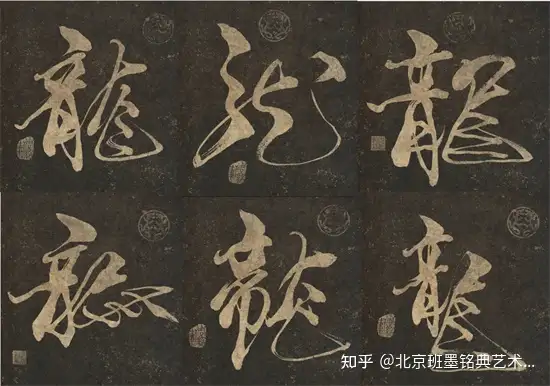 龍 龍 龍
龍 龍 龍
知乎 @北京班墨铭典艺术...